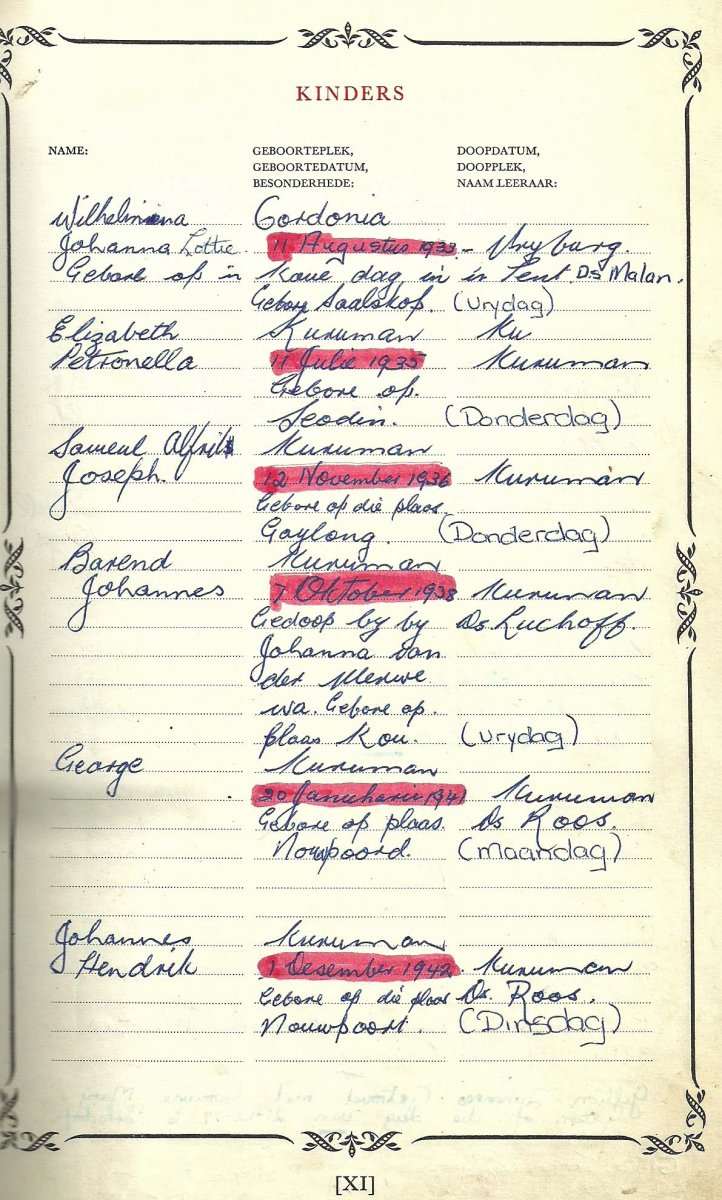 KINDERS
NAME: GEBOORTEPLEK, DOOPDATUM,
GEBOORTEDATUM, DOOPPLEK,
BESONDERHEDE: NAAM LEERAAR:
Wilhelmina Gordonia
Johanna Lottie 11 Augustus 1933 - Vryburg.
Gebore op 'n koue dag in 'n Tent. Ds Malan.
Gebore Saalskop. (Vrydag)
Elizabeth Kuruman Ku
Petronella 11 Julie 1935 Kuruman
Gebore op.
Seodin. (Donderdag)
Sameul Alfrits Kuruman
Joseph. 12 November 1936 Kuruman
Gebore op die plaas
Gaylong. (Donderdag)
Barend Kuruman
Johannes 7 Oktober 1938 Kuruman
Gedoop by by Ds Luchoff.
Johanna van
der Merwe
wa. Gebore op.
plaas Kou. (Vrydag)
George Kuruman
20 Januharie 1941 Kuruman
Gebore op plaas. Ds Roos.
Nouwpoord. (Maandag)
Johannes Kuruman
Hendrik 1 Desember 1942. Kuruman
Gebore op die plaas Ds. Roos.
Nouwpoort. (Dinsdag)
[XI]